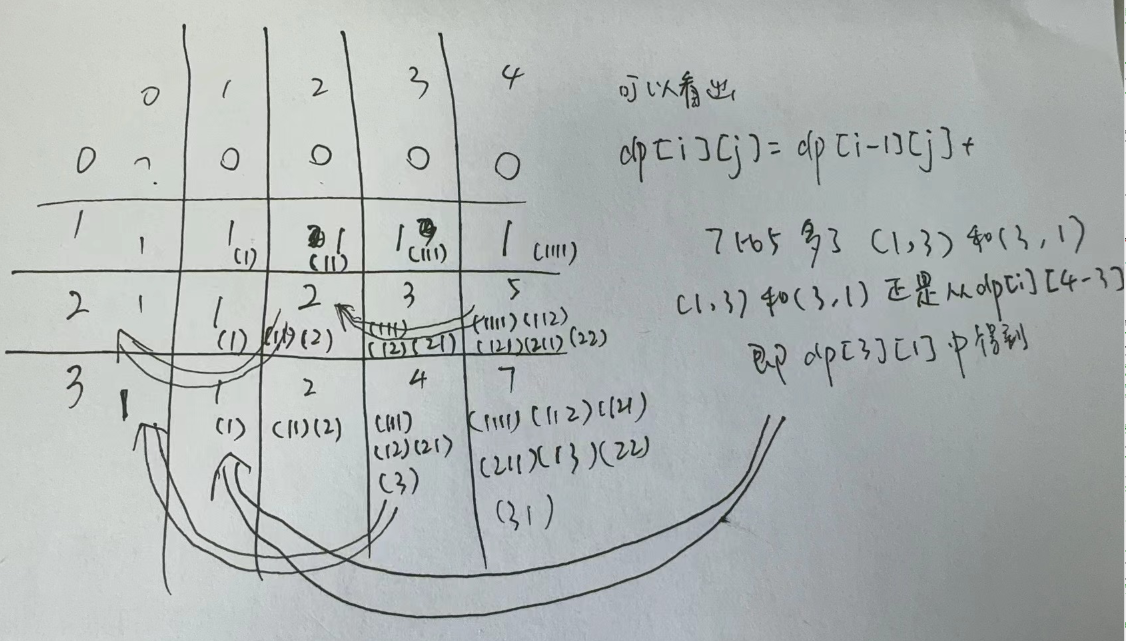 0 1 2 3 4
0 0 0 0 0
1 1 1 1 1 1
(1) (11) (111) (1111)
2 1 1 2 3 5
(1) (11)(2) (111) (1111)(112)
(12)(21) (121)(211)(22)
3 1 1 2 4 7
(1) (11)(2) (111) (1111)(112)(121)
(12)(21) (211)(13)(22)
(3) (31)
可以看出
dp[i][j]=dp[i-1][j]+
7比5多了(1,3)和(3,1)
(1,3)和(3,1)正是从dp[i][4-3]
即dp[3][1]中得到